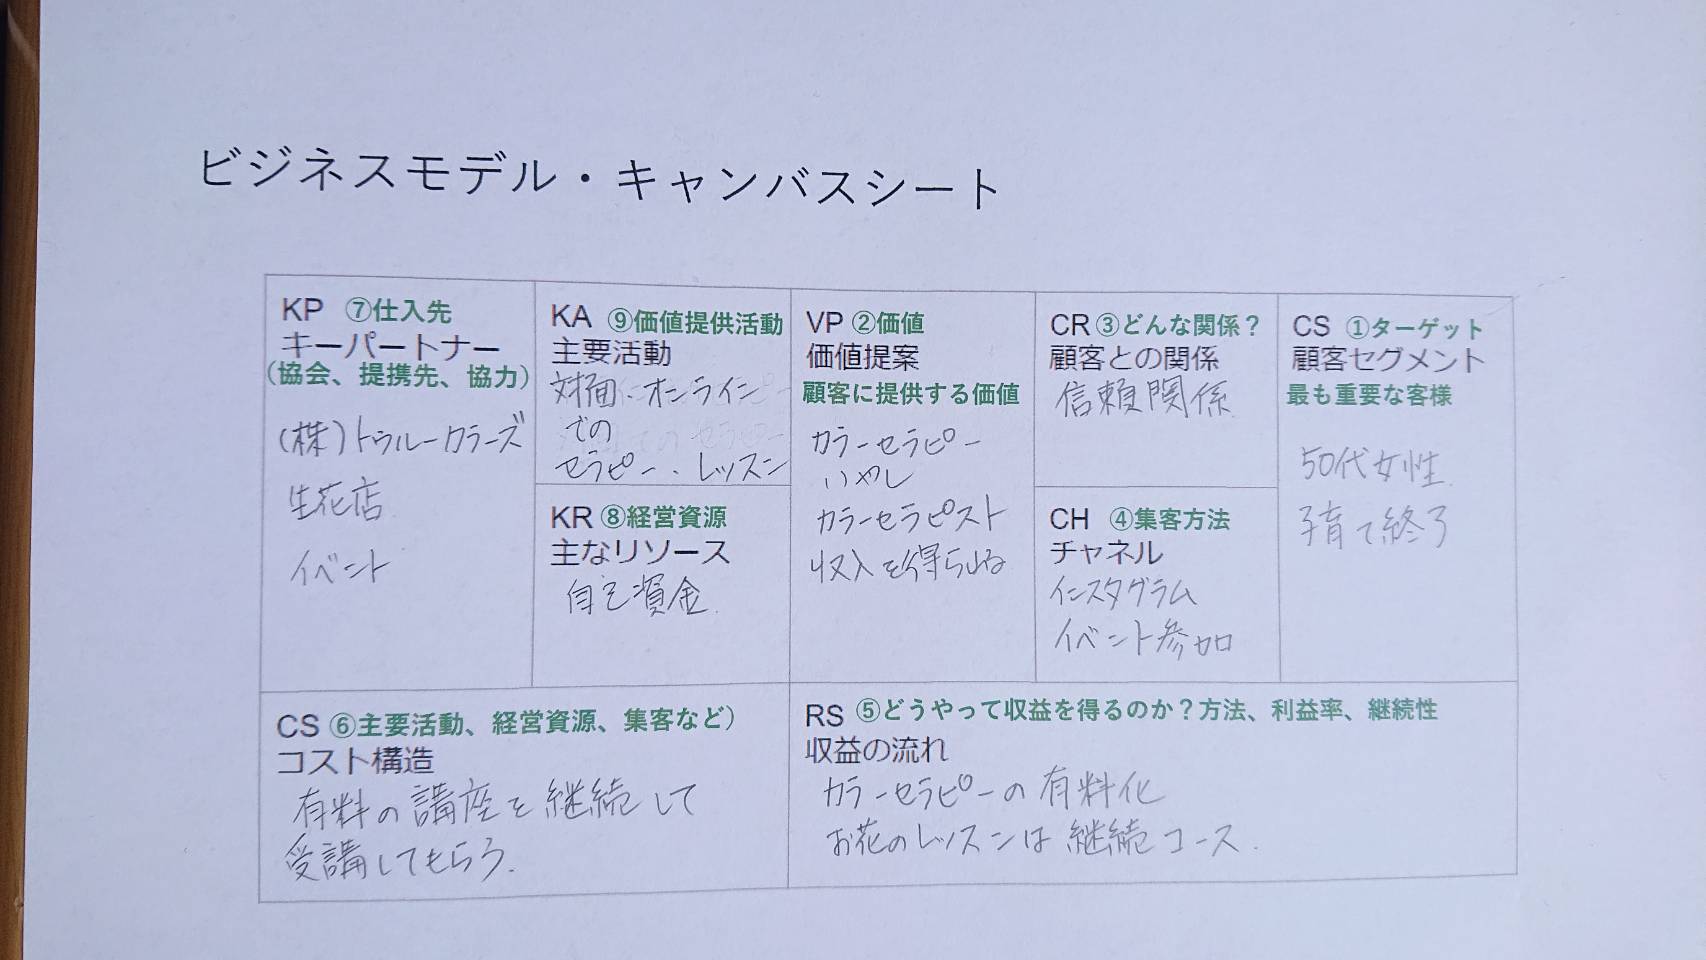 ビジネスモデル・キャンバスシート
KP ⑦仕入先
キーパートナー
(協会、提携先、協力)
(株)トゥルーカラーズ
生花店
イベント
KA ⑨価値提供活動
主要活動
対面、オンライン
での
セラピー、レッスン
KR ⑧経営資源
主なリソース
自己資金
VP ②価値
価値提案
顧客に提供する価値
カラーセラピー
いやし
カラーセラピスト
収入を得られる
CR ③どんな関係？
顧客との関係
信頼関係
CH ④集客方法
チャネル
インスタグラム
イベント参加
CS ①ターゲット
顧客セグメント
最も重要な客様
50代女性
子育て終了
CS ⑥主要活動、経営資源、集客など）
コスト構造
有料の講座を継続して
受講してもらう.
RS ⑤どうやって収益を得るのか？方法、利益率、継続性
収益の流れ
カラーセラピーの有料化
お花のレッスンは継続コース.